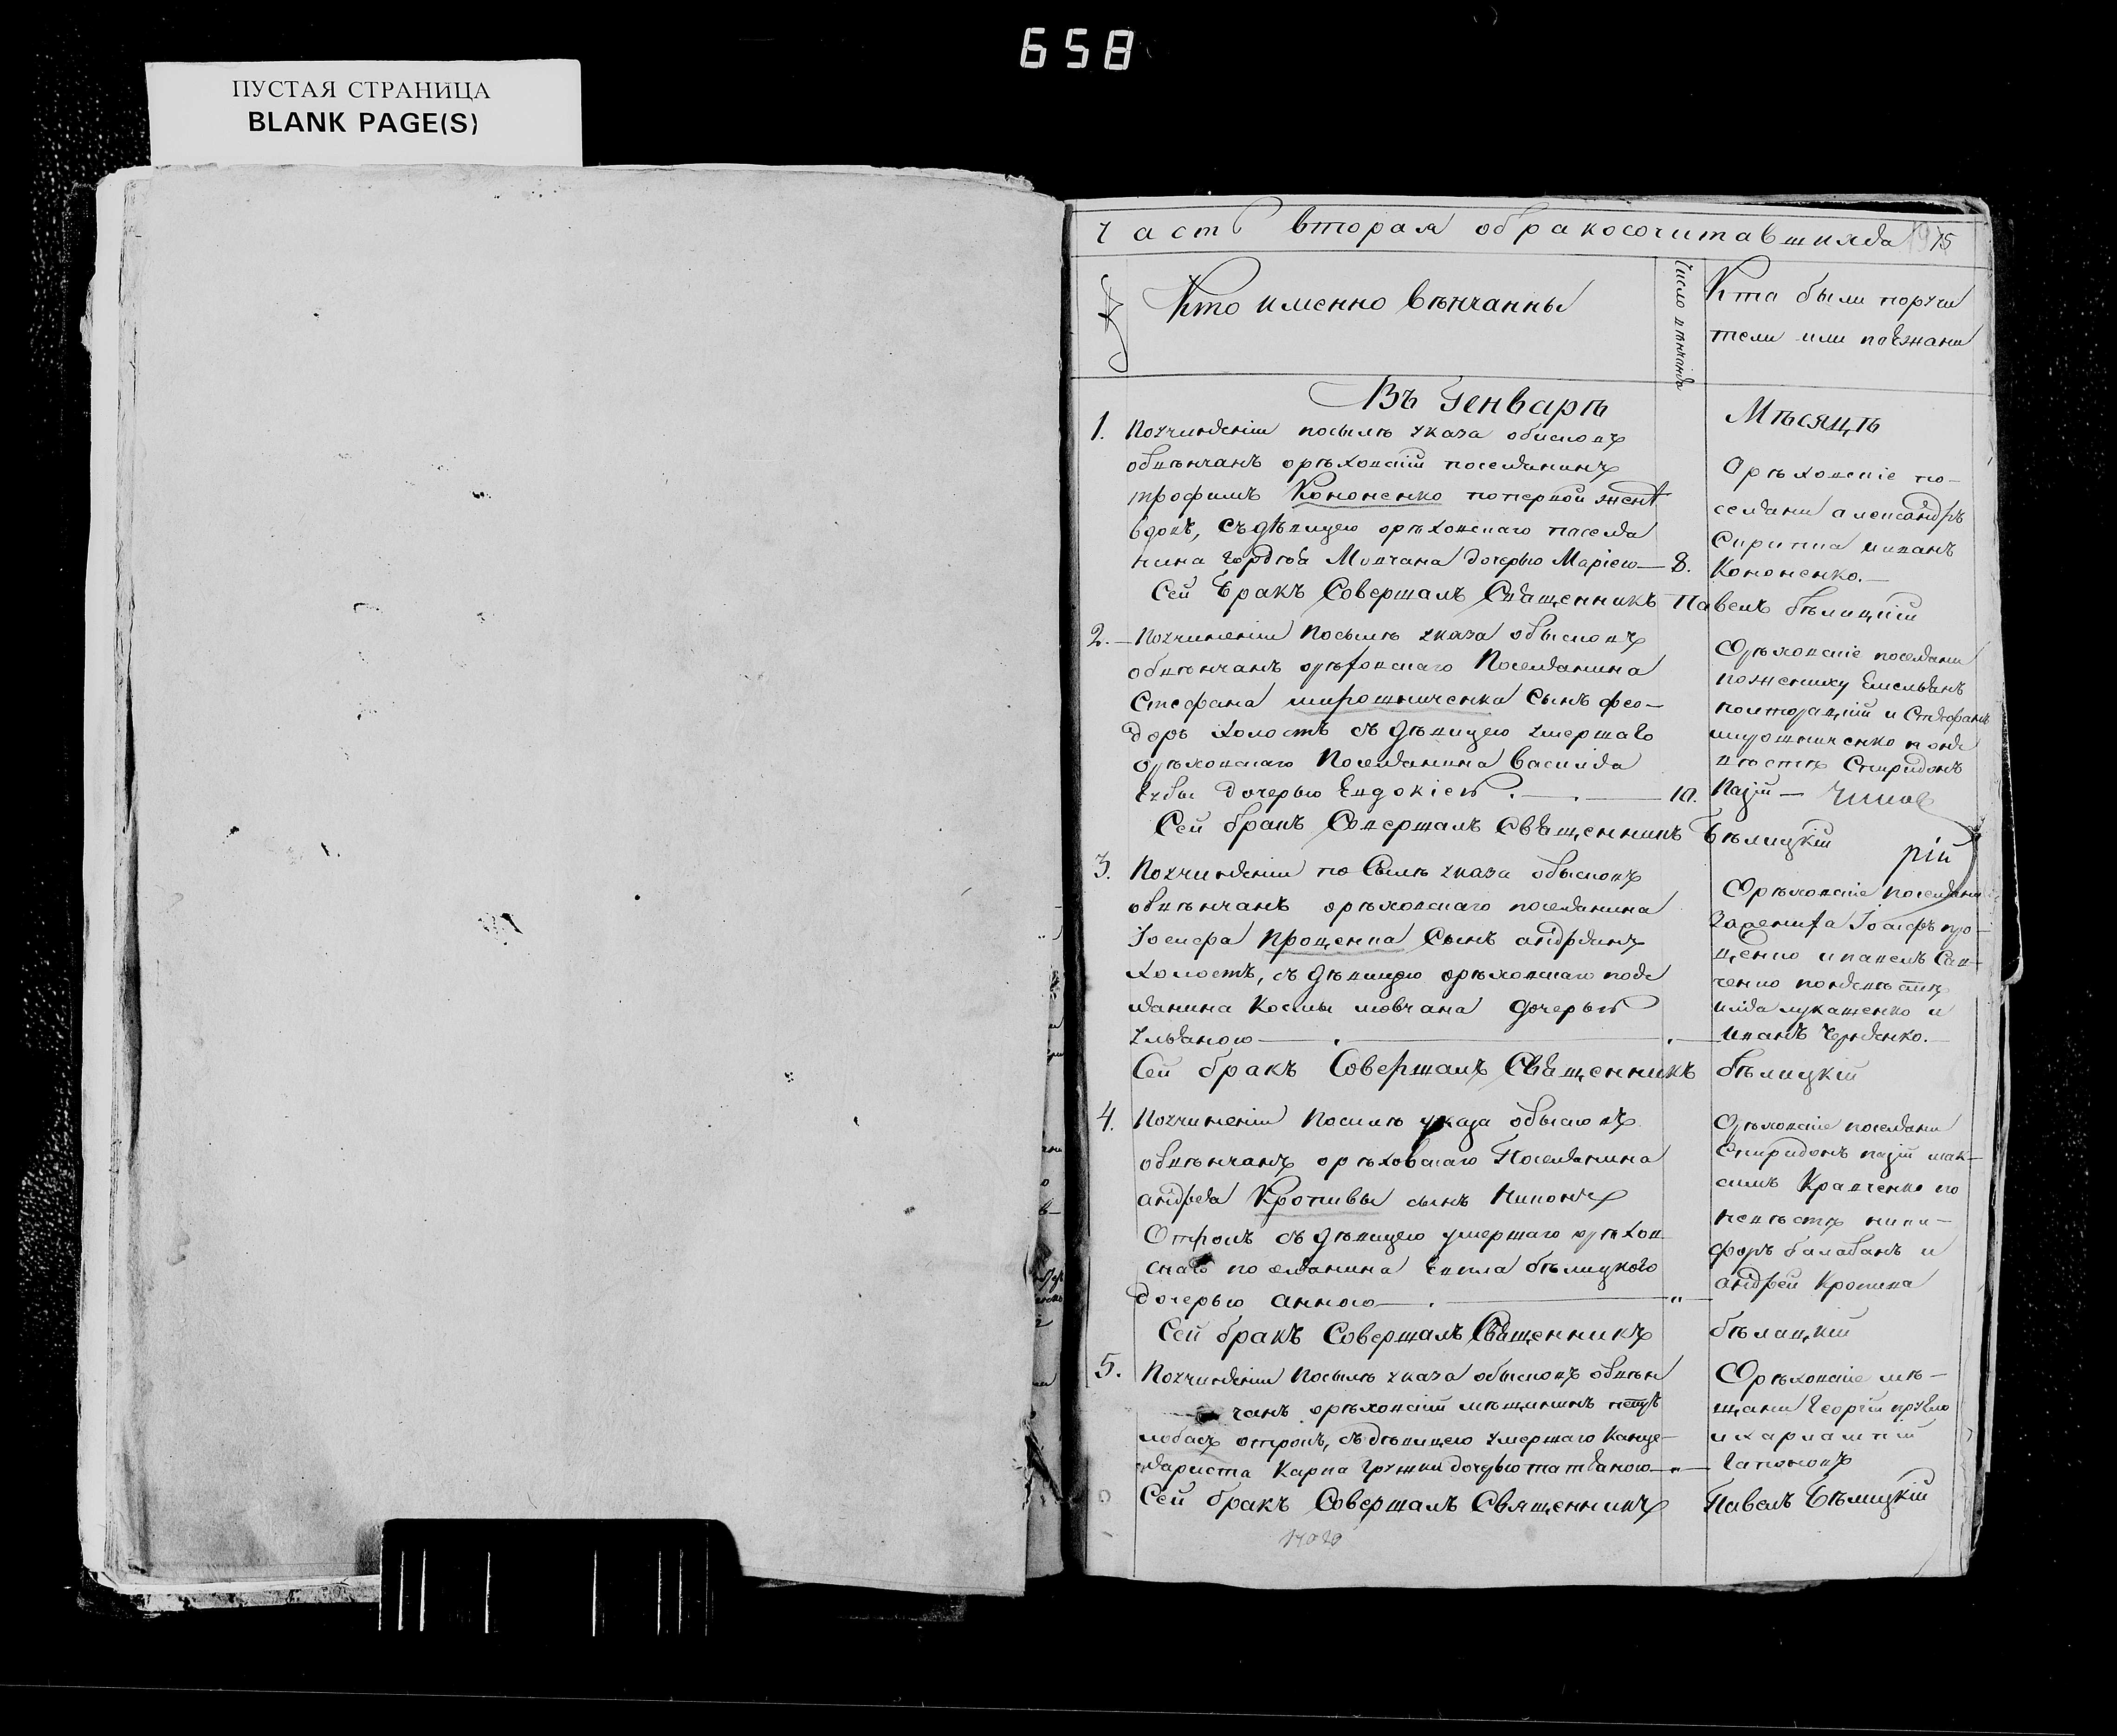 658
ПУСТАЯ СТРАНИЦА
BLANK PAGE(S)
Часть вторая обракосочитавшихся 15
№
Кто именно вѣнчанны
Число вѣнчанія
Кто были поручи
тели или поѣзжани
Въ Генварѣ
Мѣсяцѣ
1. Поучинѣніи посылѣ указа обысковъ
обвѣнчанъ орѣховскій поселянинъ
трофимъ Кононенко поперной женѣ
вдовъ, съ дѣвицею орѣховскаго поселя
нина Гордѣя Мовчана дочерью Маріею — 8.
Орѣховскіе по-
селяни александръ
Скрипка иванъ
Кононенко. —
Сей Бракъ Совершалъ Священникъ Павелъ бѣлицкій
2. — Поучиненіи Посылѣ указа обысковъ
обвѣнчанъ орѣховскаго Поселянина
Стефана мирошниченка Сынъ фео-
доръ холостъ съ дѣвицею умершаго
орѣховскаго Поселянина Василія
дочерью Евдокіею . — . — 10.
Орѣховскіе поселяни
пожениху Емельянъ
полторацкій и Стефанъ
мирошниченко поне
вѣстѣ Спиридонъ
Пазій —
Сей бракъ Совершалъ Священникъ Бѣлицкій
рій
3. Поучинѣніи по Сылѣ указа обысковъ
обвѣнчанъ орѣховскаго поселянина
Іосифа Проценка Сынъ андріянъ
холостъ, съ дѣвицею орѣховскаго посе
лянина Космы мовчана дочерью
ульяною — . — . —
Орѣховскіе поселяни
Іосифъ про-
ценко и павелъ Сав-
ченко поневѣстѣ
илія лукашенко и
иванъ —
Сей бракъ Совершалъ Священникъ бѣлицкій
4. Поучиненіи Посылѣ указа обысковъ
обвѣнчанъ орѣховскаго Поселянина
андрея Кропивы сынъ Никонъ
Отрокъ съ дѣвицею умершаго орѣхов
скаго поселянина бѣлицкого
дочерью анною — . — "
Орѣховскіе поселяни
Спиридонъ пазій мак-
симъ Кравченко по
невѣстѣ ники-
форъ балабанъ и
андрей Кропива
Сей бракъ Совершалъ Священникъ бѣлицкій
5. Поучинѣніи Посылѣ указа обысковъ обвѣн
чанъ орѣховскій мѣщининъ петръ
лобасъ отрокъ, съ дѣвицею умершаго Канце-
ляриста Карпа дочерью татіаною — " —
Орѣховскіе мѣ-
щани Георгій
и харлампій
Гапоновъ
Сей бракъ Совершалъ Священникъ Павелъ Бѣлицкій